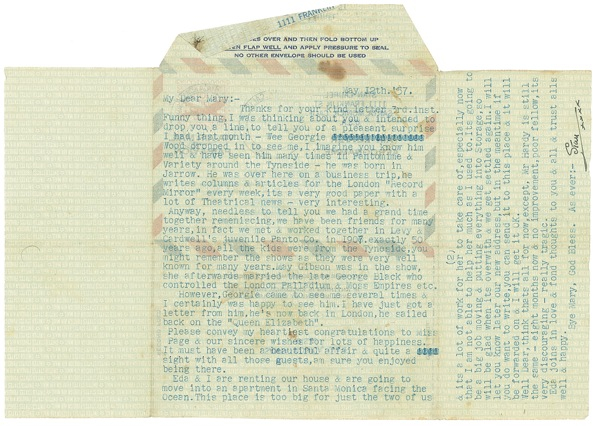 1111 FRANKLIN
ES OVER AND THEN FOLD BOTTOM UP
EN FLAP WELL AND APPLY PRESSURE TO SEAL
NO OTHER ENVELOPE SHOULD BE USED
May 12th.'57.
My Dear Mary:-
Thanks for your kind letter 3rd.inst.
Funny thing,I was thinking about you & intended to
drop you a line,to tell you of a pleasant surprise
I had last month - Wee Georgie
Wood dropped in to see me,I imagine you know him
well & have seen him many times in Pantomime &
Variety around the Tyneside - he was born in
Jarrow. He was over here on a business trip,he
writes columns & articles for the London "Record
Mirror" every week,its a very good paper with a
lot of Theatrical news - very interesting.
Anyway, needless to tell you we had a grand time
together reminiscing,we have been friends for many
years,in fact we met & worked together in Levy &
Cardwell's juvenile Panto.Co. in 1907.exactly 50
years ago,all the kids were from the Tyneside,you
might remember the shows as they were very well
known for many years.May Gibson was in the show,
she afterwards married the late George Black who
controlled the London Palladium & Moss Empires etc.
However,Georgie came to see me several times &
I certainly was happy to see him. I have just got a
letter from him,he's now back in London,he sailed
back on the "Queen Elizabeth".
Please convey my heartiest congratulations to Miss
Page & our sincere wishes for lots of happiness.
It must have been a beautiful affair & quite a
sight with all those guests,am sure you enjoyed
being there.
Eda & I are renting our house & are going to
move into an apartment in Santa Monica facing the
Ocean.This place is too big for just the two of us
(2)
& its a lot of work for her to take care of,especially now
that I am not able to help her much as I used to.its going to
be a big job moving & putting everything into Storage,so
will be glad when its overwith & we get settled again.I will
let you know later our new address,but in the meantime if
you do want to write,you can send it to this place & it will
be forwarded on & I will get it.
Well Dear,think thats all for now,except, Mr Hardy is still
the same - eight months now & no improvement,poor fellow,its
very discouraging,really tragic.
Eda joins in love & fond thoughts to you & all & trust alls
well & happy. Bye Mary, God Bless. As ever:-
Stan